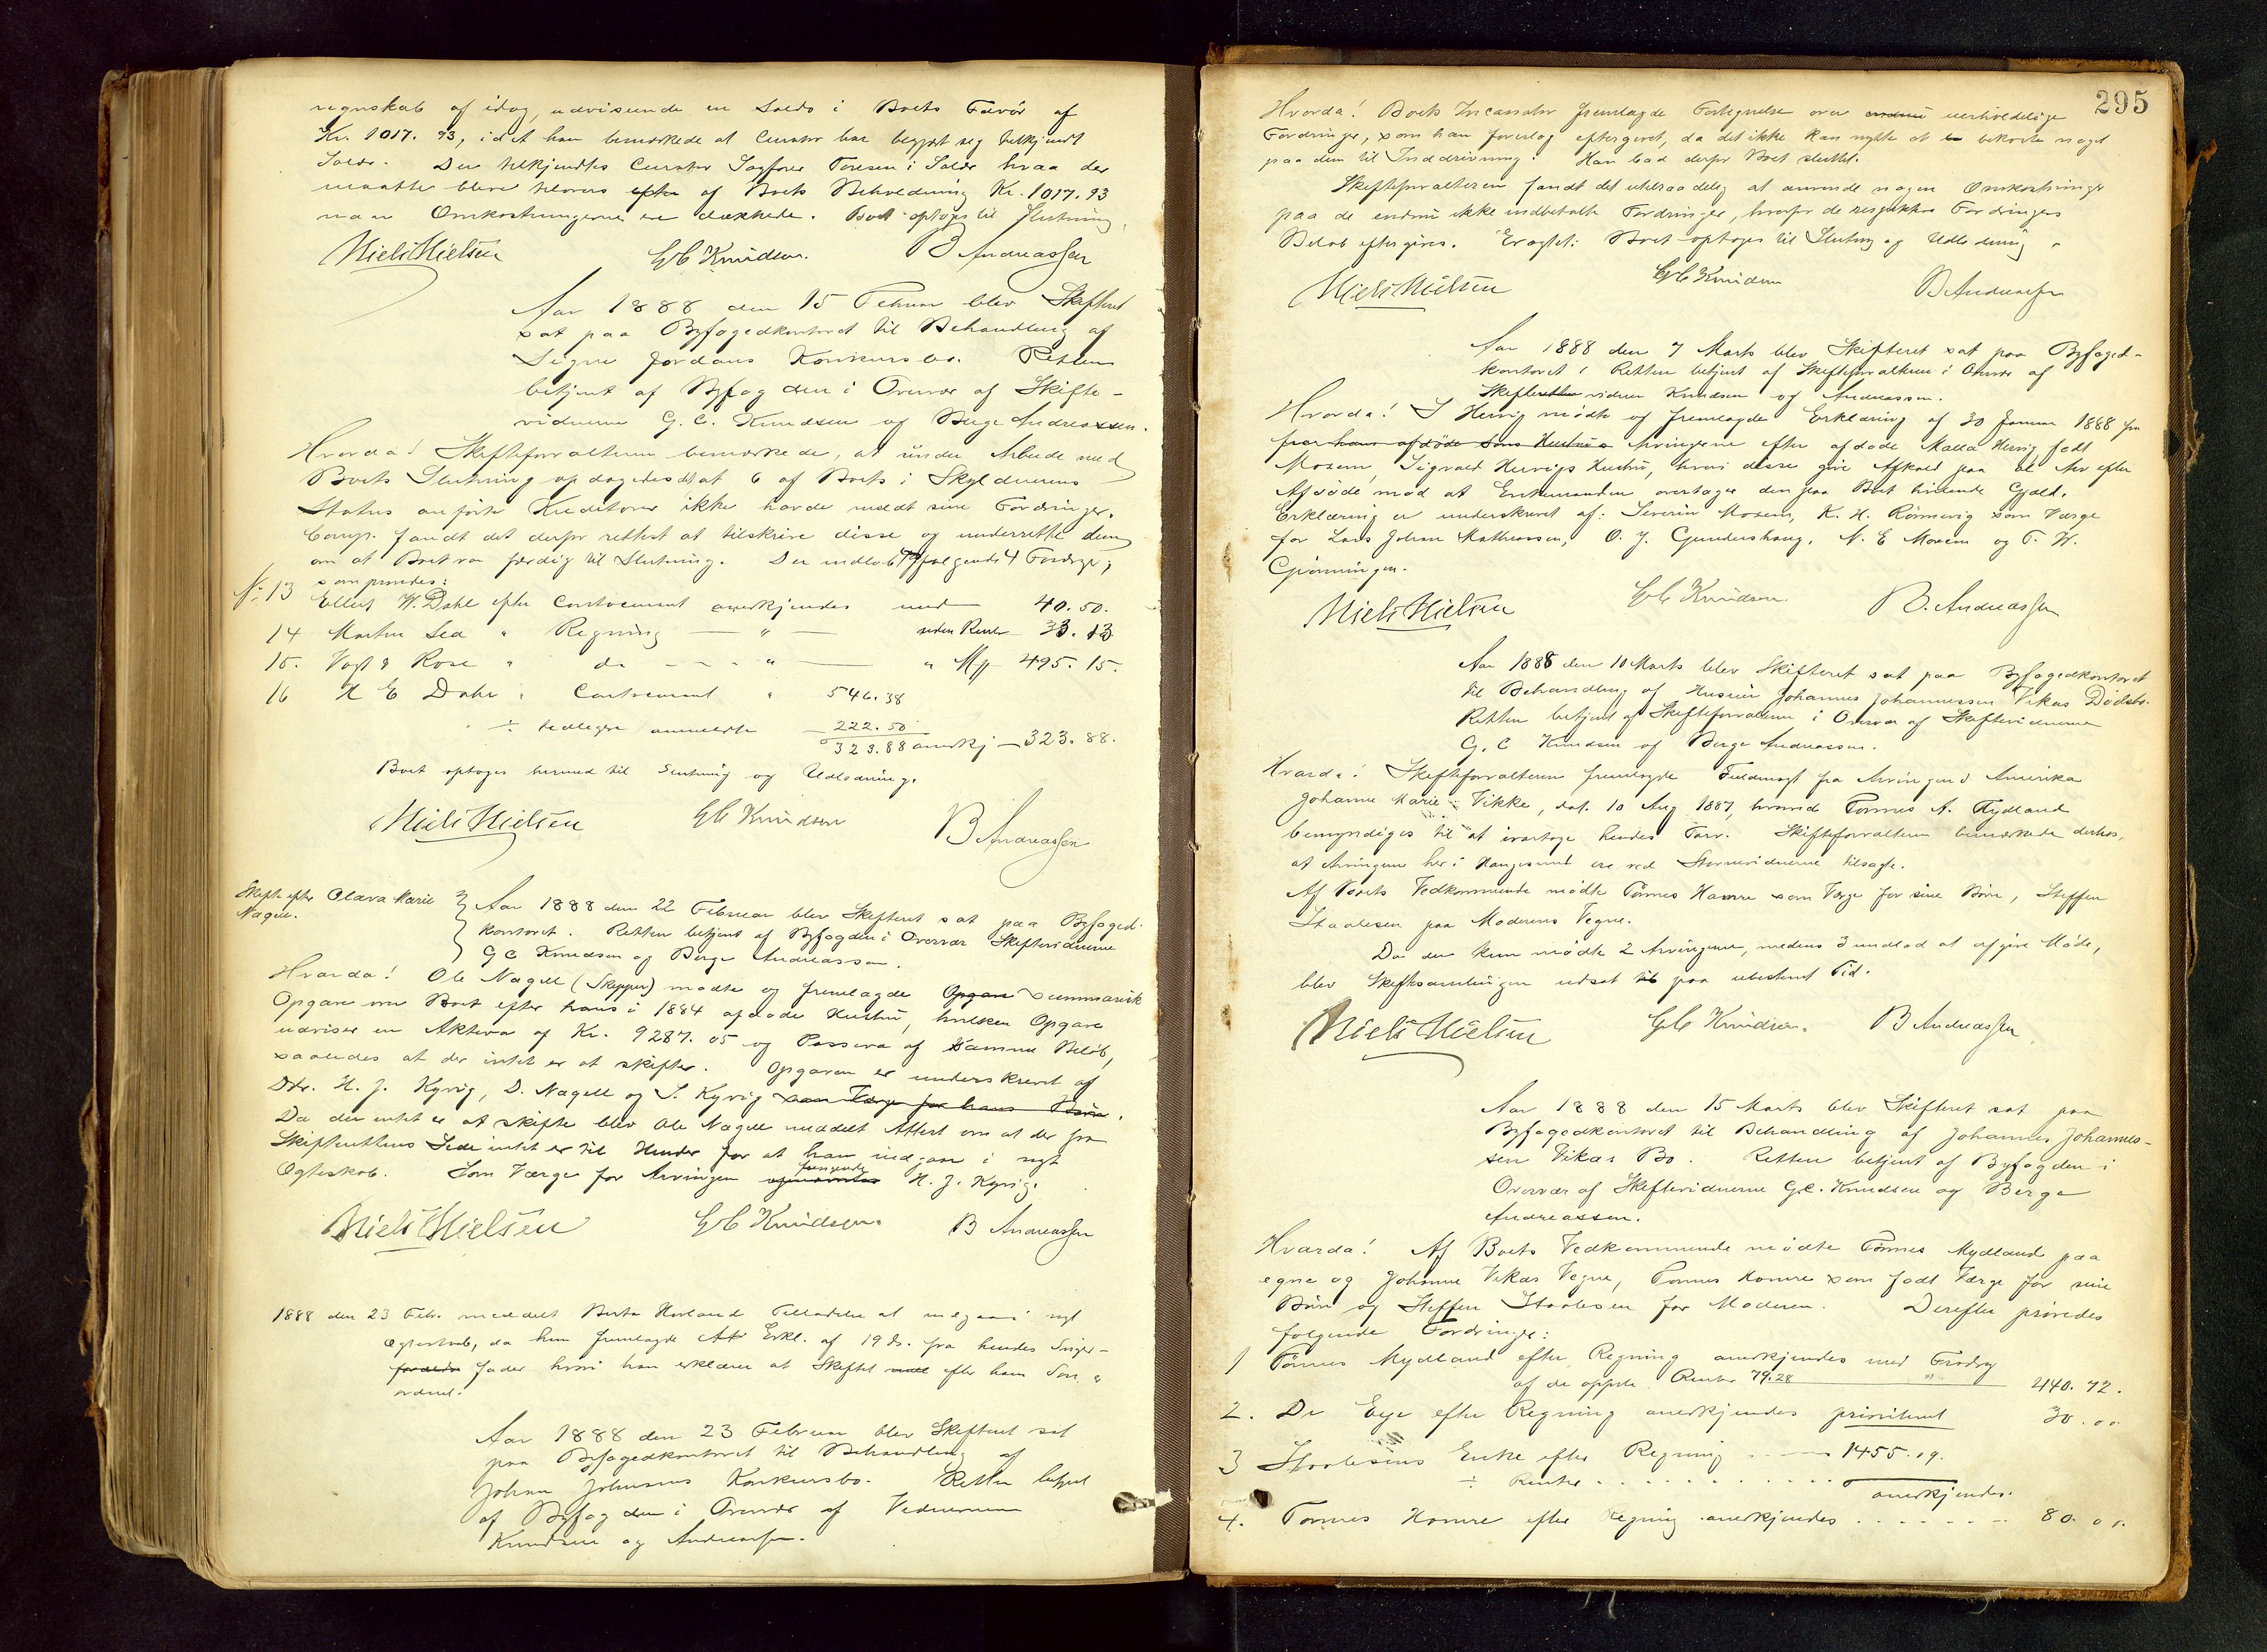 regnskab af idag, udvisende en Saldo i Boets Favör af
Kr. 1017.93, idet han bemærkede at Curator har begjært seg tilkjendt
Saldo. Der tilkjendtes Curator Sagfører Toresen i Salær hvad der
maatte blive tilovers efter af Boets Beholdning Kr. 1017.93
naar Omkostningerne ere dækkede. Boet optoges til Slutning.
Niels Nielsen G C Knudsen B Andreassen
Aar 1888 den 15 Februar blev Skifteret
sat paa Byfogedkontoret til Behandling af
Signe Jordans Konkursbo. Retten
betjent af Byfogden i Overvær af Skifte-
vidnerne G. C. Knudsen og Berge Andreassen.
Hvorda! Skifteforvalteren bemærkede, at under Arbeide med
Boets Slutning opdagedes at 6 af Boets i Skyldnerens
Status anførte Kreditorer ikke havde meldt sine Fordringer.
Comp. fandt det derfor rettest at tilskrive disse og underrette dem
om at Boet var færdig til Slutning. Der indløb følgende 4 Fordrger,
som prøvedes:
No 13 Ellert W. Dahl efter Contocurant anerkjendes med 40.50.
14 Martin Lea " Regning — " — uden Renter 33.13
15. Vogt & Rose " do — " — " 495.15.
16 H E Dahl " Contocurant " 546.38
÷ tidligere anmeldte 222.50
323.88 anerkj — 323.88.
Boet optoges hermed til Slutning og Udlodning.
Niels Nielsen G C Knudsen B Andreassen
Skifte efter Olava Marie
Nagell.
Aar 1888 den 22 Februar blev Skifteret sat paa Byfoged-
kontoret. Retten betjent af Byfogden i Overvær Skiftevidnerne
G C Knudsen og Berge Andreassen.
Hvorda! Ole Nagell (Skipper) mødte og fremlagde Opgave summarisk
Opgave over Boet efter hans i 1884 afdøde Hustru, hvilken Opgave
udviser en Aktiva af Kr. 9287.05 og Passiva af samme Beløb,
saaledes at der intet er at skifte. Opgaven er underskrevet af
H. J. Kyvig, D. Nagell og S. Kyvig som Værge for hans Børn.
Da der intet er at skifte blev Ole Nagell meddelt Attest om at der fra
Skifterettens Side intet er til Hinder for at han indgaar i nyt
Ægteskab. Som Værge for Arvingen fungerede H. J. Kyvig.
Niels Nielsen G C Knudsen B Andreassen
1888 den 23 Febr. meddelt Berta Hovland Tilladelse at indgaa i nyt
Ægteskab, da hun fremlagde Erkl. af 19 ds. fra hendes Sviger-
fader hvori han erklærer at Skiftet efter hans Søn er
ordnet.
Aar 1888 den 23 Februar blev Skifteret sat
paa Byfogedkontoret til Behandling af
Johan Johnsens Konkursbo. Retten betjent
af Byfogden i Overvær af Vidnerne
Knudsen og Andreassen.
295
Hvorda! Boets Incassator fremlagde Fortegnelse over uerholdelige
Fordringer, som han foreslog eftergivet, da det ikke kan nytte at bekoste noget
paa dem til Inddrivning. Han bad derfor Boet sluttet.
Skifteforvalteren fandt det utilraadelig at anvende nogen Omkostninger
paa de endnu ikke indbetalte Fordringer, hvorfor de respektive Fordringers
Beløb eftergives. Eragtet: Boet optoges til Slutning og Udlodning.
Niels Nielsen G C Knudsen B Andreassen
Aar 1888 den 7 Marts blev Skifteret sat paa Byfoged-
kontoret. Retten betjent af Skifteforvalteren i Overvær af
Skiftevidnerne Knudsen og Andreassen.
Hvorda! S Hervig mødte og fremlagde Erklæring af 30 Januar 1888 fra
fra hans afdøde Hustrus Arvingerne efter afdøde Malla Hervig født
Mosem, Sigvald Hervigs Hustru, hvori disse give Afkald paa al Arv efter
Afdøde mod at Enkemanden overtager den paa Boet hvilende Gjæld.
Erklæring er underskrevet af: Severin Mosem, K. H. Rönnevig som Værge
for Lars Johan Mathiassen, O. J. Gundershaug, N. E Mosem og T. W.
Grönningen.
Niels Nielsen G C Knudsen B. Andreassen
Aar 1888 den 10 Marts blev Skifteret sat paa Byfogedkontoret
til Behandling af Huseier Johannes Johannessen Vikas Dødsbo.
Retten betjent af Skifteforvalteren i Overvær af Skiftevidnerne
G. C Knudsen og Berge Andreassen.
Hvorda! Skifteforvalteren fremlagde Fuldmagt fra Arvingen i Amerika
Johanne Marie Vikke, dat. 10 Aug 1887, hvorved Tønnes A. Mydland
bemyndiges til at ivaretage hendes Tarv. Skifteforvalteren bemærkede derhos,
at Arvingerne her i Haugesund ere ved Stævnevidnerne tilsagte.
Af Boets Vedkommende mødte Tönnes Homre som Værge for sine Børn, Steffen
Staalesen paa Moderens Vegne.
Da der kun mødte 2 Arvinger, medens 3 undlod at afgive Møde,
blev Skiftesamlingen udsat paa ubestemt Tid.
Niels Nielsen G C Knudsen. B Andreassen
Aar 1888 den 15 Marts blev Skifteret sat paa
Byfogedkontoret til Behandling af Johannes Johannes-
sen Vikas Bo. Retten betjent af Byfogden i
Overvær af Skiftevidnerne G.C. Knudsen og Berge
Andreassen.
Hvorda! Af Boets Vedkommende mødte Tönnes Mydland paa
egne og Johanne Vikas Vegne, Tönnes Homre som født Værge for sine
Børn og Steffen Staalesen for Moderen. Derefter prøvedes
følgende Fordringer:
1 Tönnes Mydland efter Regning anerkjendes med Fradrag
af de opførte Renter 79.28 440.72.
2. Do Eje efter Regning anerkjendes prioriteret 30.00
3 Staalesens Enke efter Regning — 1455.19.
÷ Renter . . . . . . anerkjendes.
4. Tønnes Homre efter Regning anerkjendes . . . . . . . 80.00.